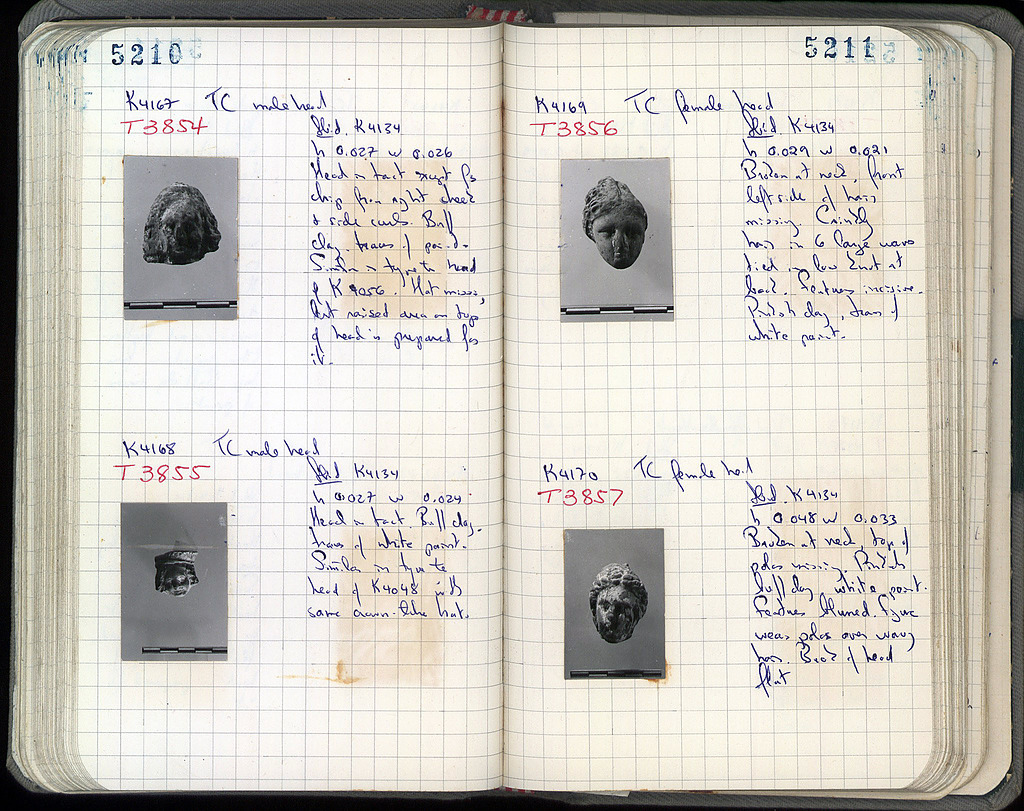 5210
K4167 TC male head
T3854
Ibid. K4134
h 0.027 w 0.026
Head intact except for
chip from right cheek
& side curls. Buff
clay, traces of paint.
Similar in type to head
of K4056. Hat missing,
but raised area on top
of head is prepared for
it.
K4168 TC male head
T3855
Ibid K4134
h 0.027 w 0.024
Head intact. Buff clay.
traces of white paint.
Similar in type to
head of K4048 with
same crown-like hat.
5211
K4169 TC female head
T3856
Ibid. K4134
h 0.029 w 0.021
Broken at neck, front
left side of hair
missing. Crinkly
hair in 6 large waves
tied in low knot at
back. Features incisive.
Pinkish clay, traces of
white paint.
K4170 TC female head
T3857
Ibid. K4134
h 0.048 w 0.033
Broken at neck, top of
polos missing. Pinkish
buff clay white paint.
Features blurred. Figure
wears polos over wavy
hair. Back of head
flat